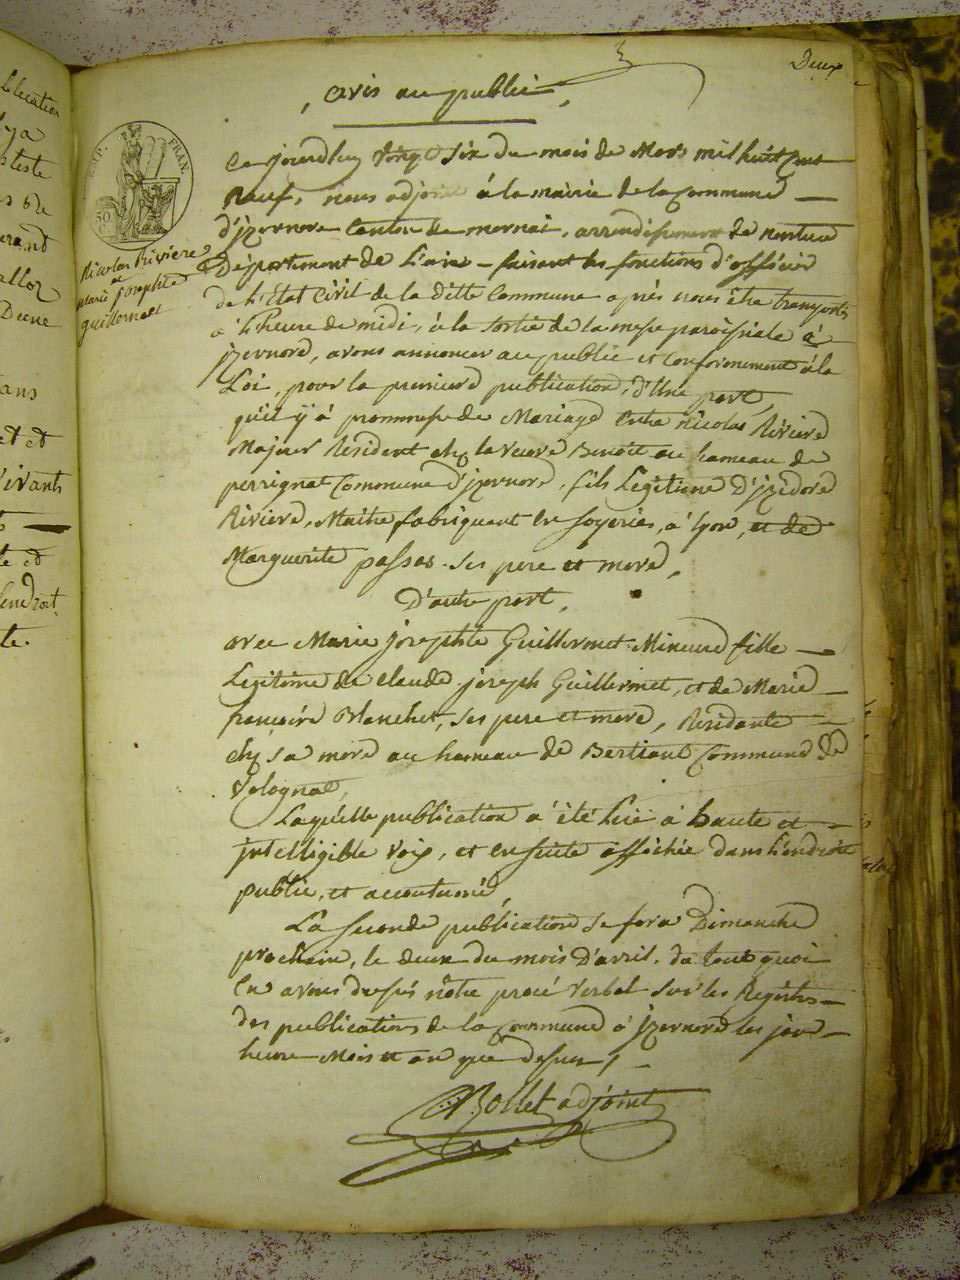 Deux
avis au public
EMP. FRAN.
50
Nicolas Riviere
et
marie josephte
guillermet
Ce jourdhuy vingt Six du mois de Mars mil huit Cent
Neuf, nous adjoint à la mairie de la Commune
d'jzernore Canton de mornai, arrondissement de nantua
Département de L'ain – faisant les fonctions d'officier
de L'Etat Civil de la ditte Commune après nous être transporté
à L'heure de midi, à la sortie de la messe paroissiale à
jzernore, avons annoncer au public et Conformement à la
Loi, pour la premiere publication, d'Une part,
qu'il y à prommesse de Mariage Entre Nicolas Riviere
Majeur Résident chez la veuve Benoit au hameau de
perrignat Commune d'jzernore, fils Legitime D'jzidore
Riviere, Maitre fabriquant en soyeries, à Lyon, et de
Marguerite passas. Ses pere et mere,
D'autre part,
avec Marie josephte Guillermet Mineure fille
Legitime de claude joseph Guillermet, et de Marie
francoise Blanchet, ses pere et mere, Residante
chez sa mere au hameau de Bertiant Commune de
Volognat,
Laquelle publication a été Luë à haute et
jntelligible voix, et ensuite affichée dans L'endroit
public, et accoutumé,
La Seconde publication se fera Dimanche
prochain, le deux du mois D'avril. da tout quoi
En avons dressés nôtre procé verbal sur les Registres
des publications de la Commune à jzernore les jour
heure Mois et an que dessus,
Bollet adjoint